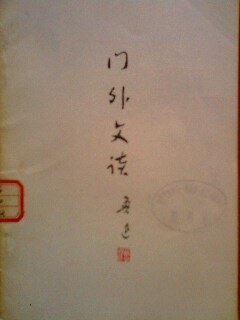 门外文谈
鲁迅